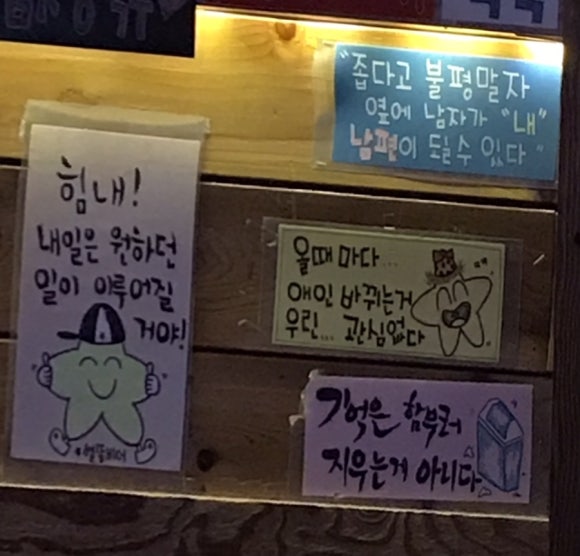 힘내!
내일은 원하던
일이 이루어질
거야!
"좁다고 불평말자
옆에 남자가 "내"
남편이 될수 있다"
올때 마다...
애인 바뀌는거
우린... 관심없다
기억은 함부로
지우는게 아니다